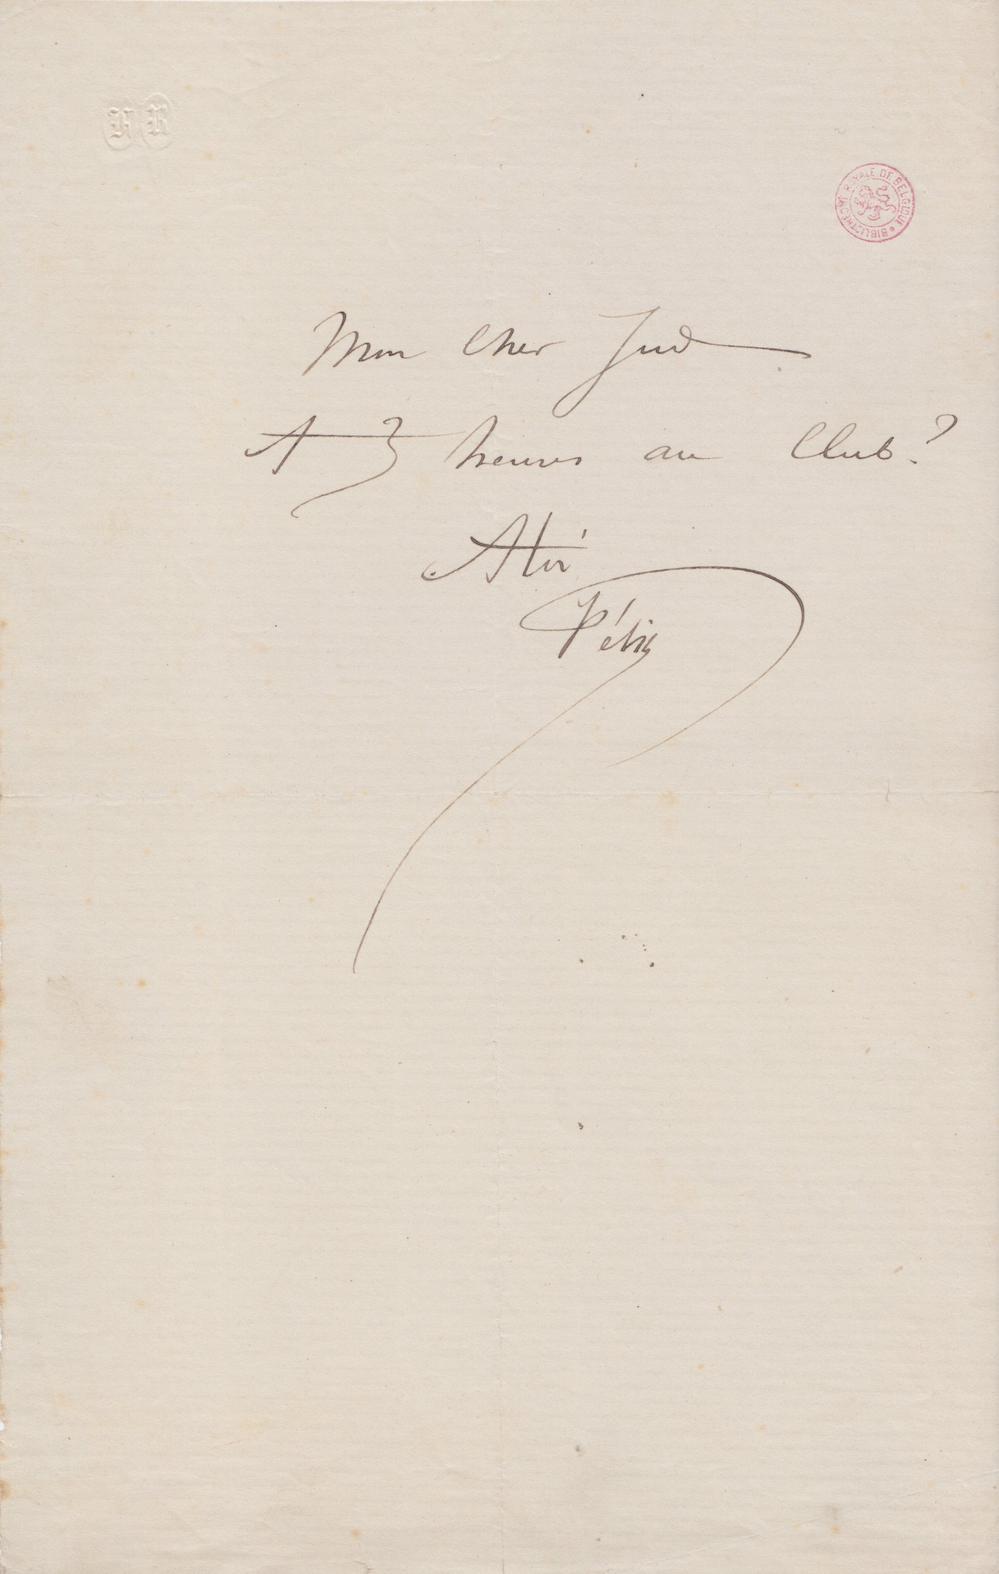 BIBLIOTHEQUE ROYALE DE BELGIQUE
Mon Cher Jud
A 3 heures au Club?
A toi
Félix